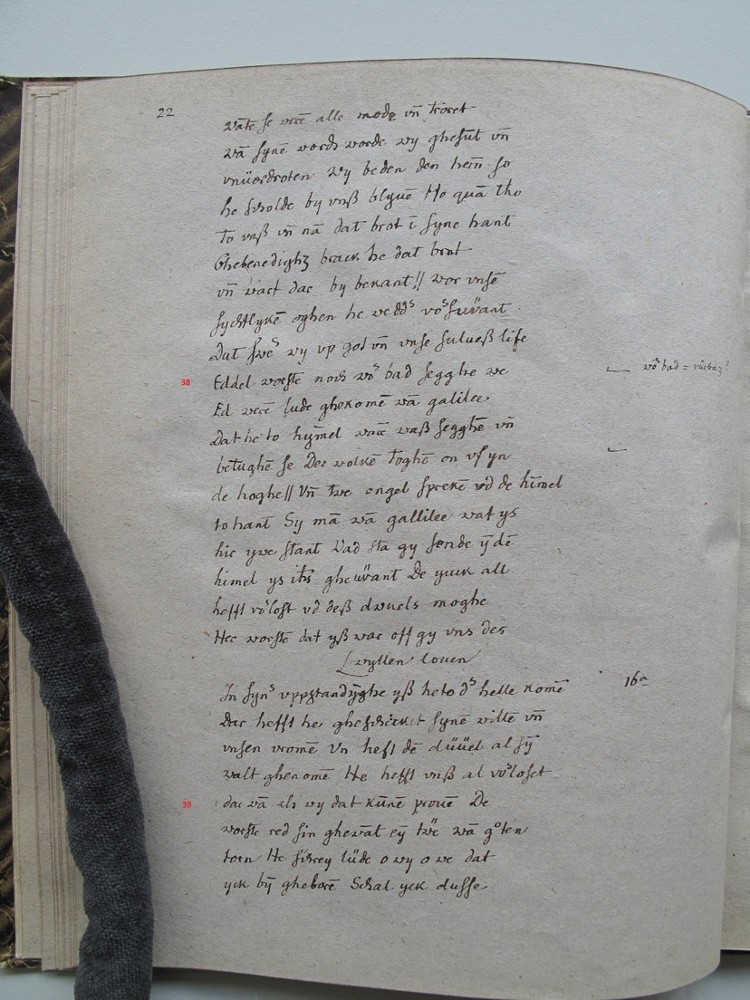 22
Wāte se verē alle mode vn̄ troret
wā synē words worde wy ghesūt vn̄
vnüerdroten Wy beden den herēn so
he wolde by vnß blyuē He quā tho
to vnß vn̄ nā dat brot ī syne hant
Ghebenedighz brack he dat brot
vn̄ wart dar by bekant // vor vnsē
sychtlykē oghen he
Dat wy vp god vn̄ vnse sulueß life
38 Eddel vorste noch vō bad segghe we
vō bad = rüebaz?
Ed verē lude ghekomē wā galilee
Dat he to hȳmel warē waß segghē vn̄
betughē se Der wolkē toghē on vs yn
de hoghe // Vn̄ twe engel sprekē vā de hīmel
to hant Sy mā wā gallilee wat ys
hir ywe stant Vad sta gy sende ȳ dē
himel ys ihs gheuūant De yuck all
hefft vōlost vā deß duuels moghe
Her vorste dat yß war off gy vns des
wyllen louen
In syns vppstandȳghe yß heto ds helle komē
16a
Dar hefft he gheschicket synē wille vn̄
vnsen vromē Vn heft dē düüel al sȳ
walt ghenomē He hefft vnß al vōloset
39 dar vā als wy dat kūne prouē De
vorste red sin ghewāt eȳ twe wā goten
torn He screy lüde o wy o we dat
yck bȳ gheborē Schal yck dusse